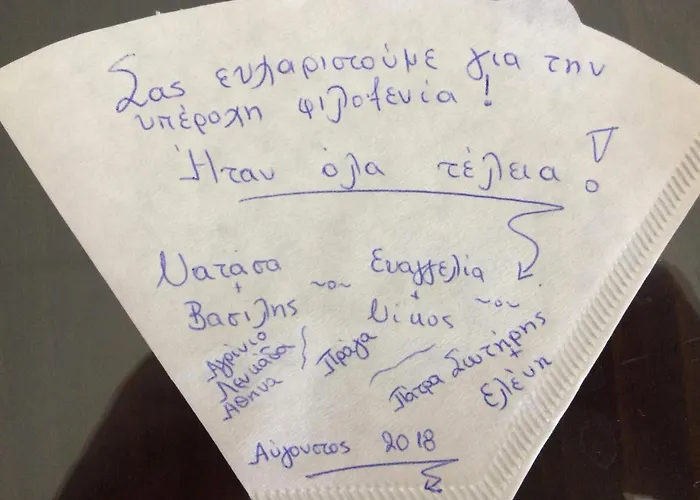 Σας ευχαριστούμε για την
υπέροχη φιλοξενία !
Ήταν όλα τέλεια !
Νατάσα
+
Βασίλης
~o~
Ευαγγελία
+
Νίκος
~o~
Αγρίνιο
Λευκάδα
Αθήνα
Πράγα
Πάτρα
Σωτήρης
+
Ελένη
Αύγουστος 2018